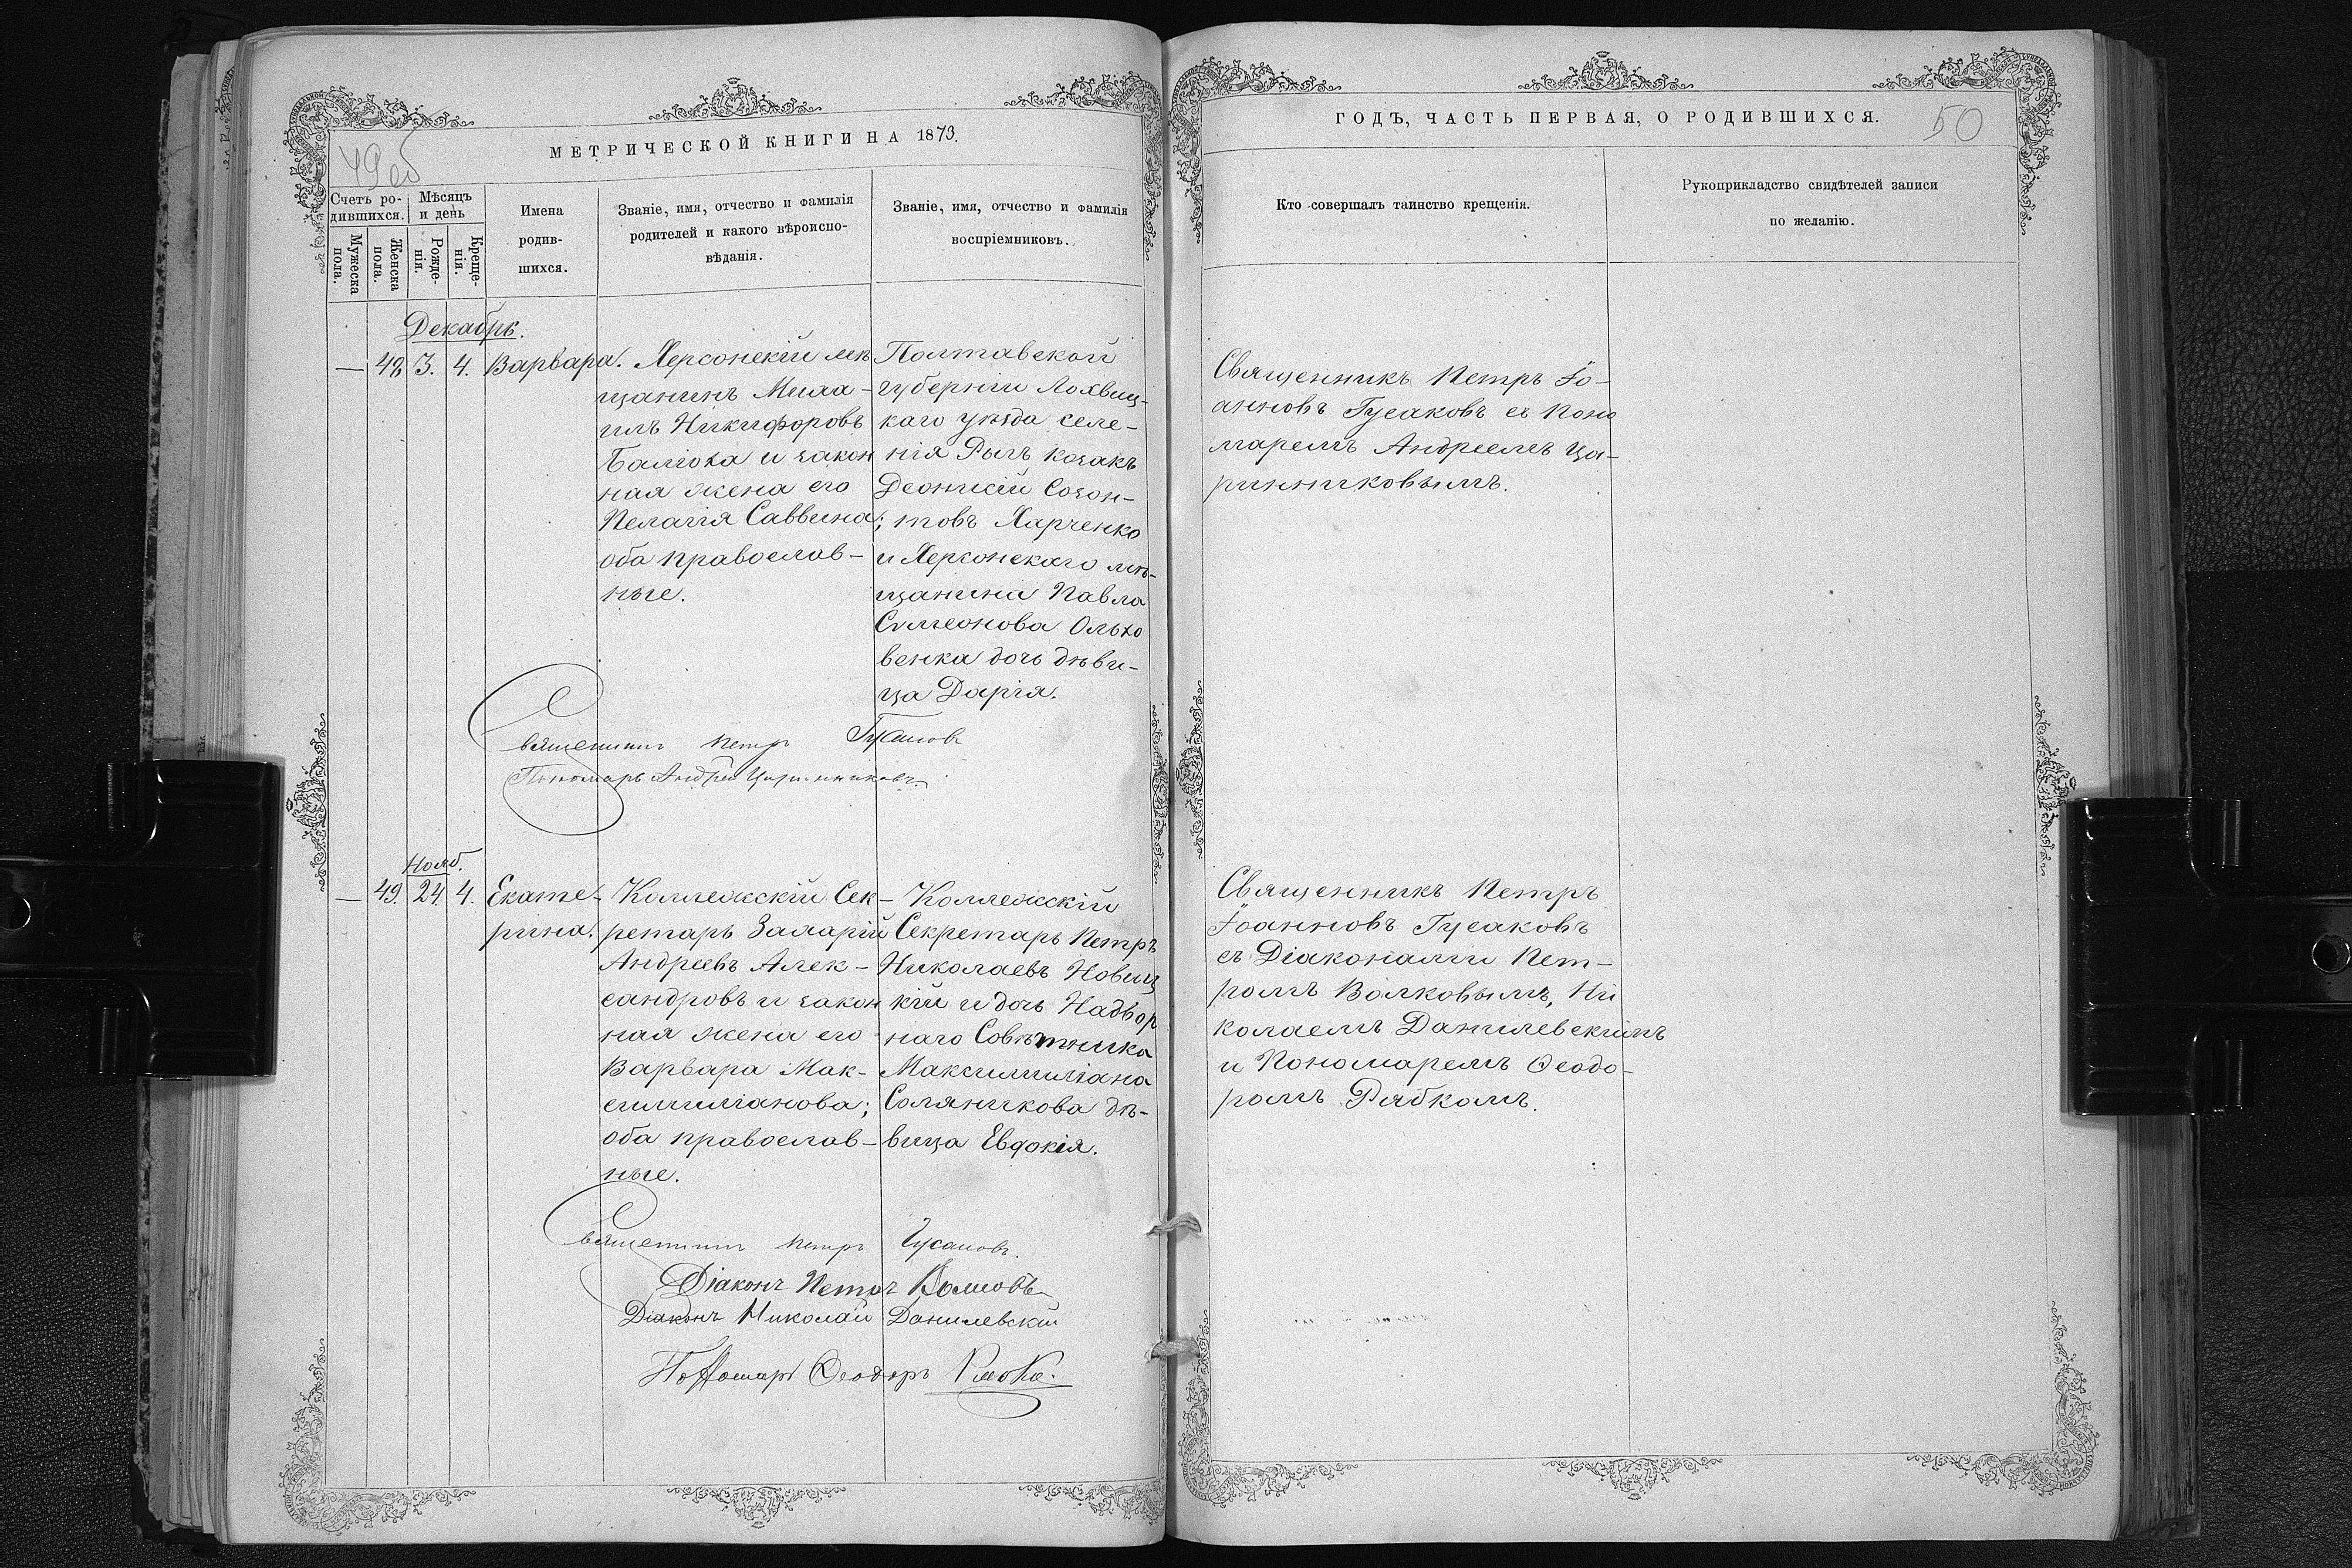 49 об
МЕТРИЧЕСКОЙ КНИГИ НА 1873.
Счетъ ро-
дившихся.
Мѣсяцъ
и день
Мужеска
пола.
Женска
пола.
Рожде-
нія.
Креще-
нія.
Имена
родив-
шихся.
Званіе, имя, отчество и фамилія
родителей и какого вѣроиспо-
вѣданія.
Званіе, имя, отчество и фамилія
воспріемниковъ.
Декабрь.
— 48 3. 4. Варвара.
Херсонскій мѣ
щанинъ Миха-
илъ Никифоровъ
и закон
ная жена его
Пелагія Саввина;
оба православ-
ные.
Полтавской
губерніи Лохвиц-
каго уѣзда селе-
нія козакъ
Деонисій Созон-
товъ Харченко
и Херсонскаго мѣ-
щанина Павла
Сѵмеонова Ольхо
венка дочь дѣви-
ца Дарія.
Священникъ Петръ Гусаковъ
Пономарь Андрей Царинниковъ
Нояб.
— 49. 24. 4. Екате-
рина.
Коллежскій Сек-
ретарь Захарій
Андреевъ Алек-
сандровъ и закон
ная жена его
Варвара Мак-
симиліанова;
оба православ-
ные.
Коллежскій
Секретарь Петръ
Николаевъ Новиц
кій и дочь Надвор
наго Совѣтника
Максимиліана
Соляникова дѣ-
вица Евдокія.
Священникъ Петръ Гусаковъ.
Діаконъ Петръ Волковъ
Діаконъ Николай Данилевскій
Пономарь Ѳеодоръ
ГОДЪ, ЧАСТЬ ПЕРВАЯ, О РОДИВШИХСЯ.
50
Кто совершалъ таинство крещенія.
Рукоприкладство свидѣтелей записи
по желанію.
Священникъ Петръ Іо-
анновъ Гусаковъ съ Поно
маремъ Андреемъ Ца-
ринниковымъ.
Священникъ Петръ
Іоанновъ Гусаковъ
съ Діаконами Пет-
ромъ Волковымъ, Ни
колаемъ Данилевскимъ
и Пономаремъ Ѳеодо-
ромъ Рябкомъ.